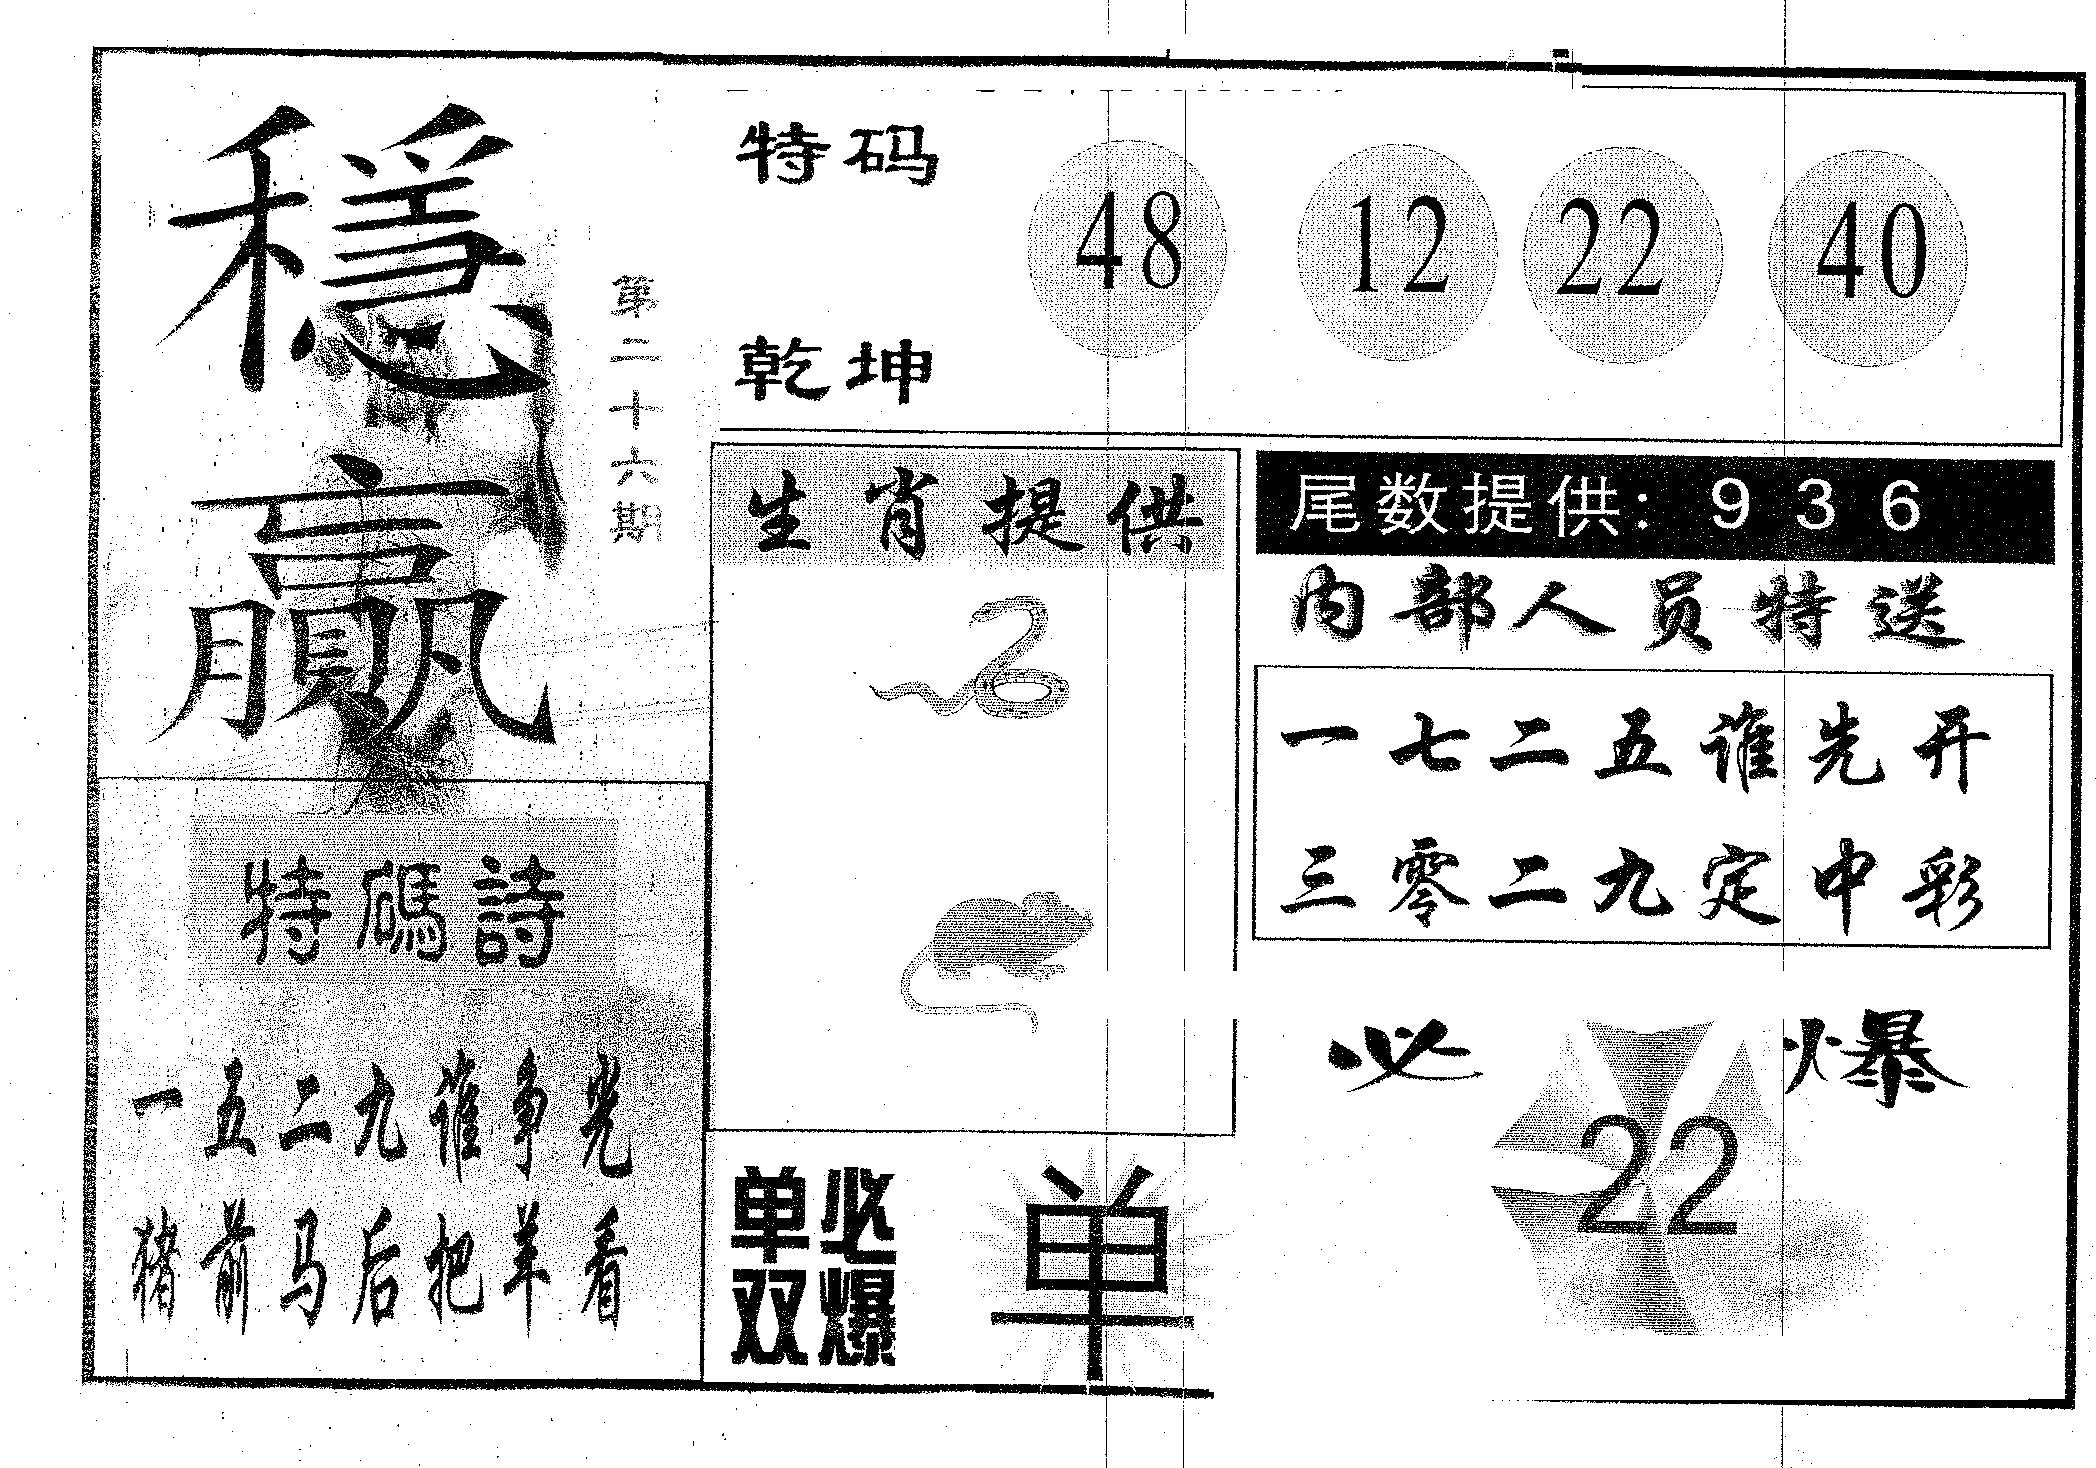 穩贏
第二十六期
特码
乾坤
48 12 22 40
生肖提供
尾数提供：9 3 6
内部人员特送
一七二五谁先开
三零二九定中彩
特碼詩
一五二九谁争光
猪前马后把羊看
必爆
22
单双
必爆
单